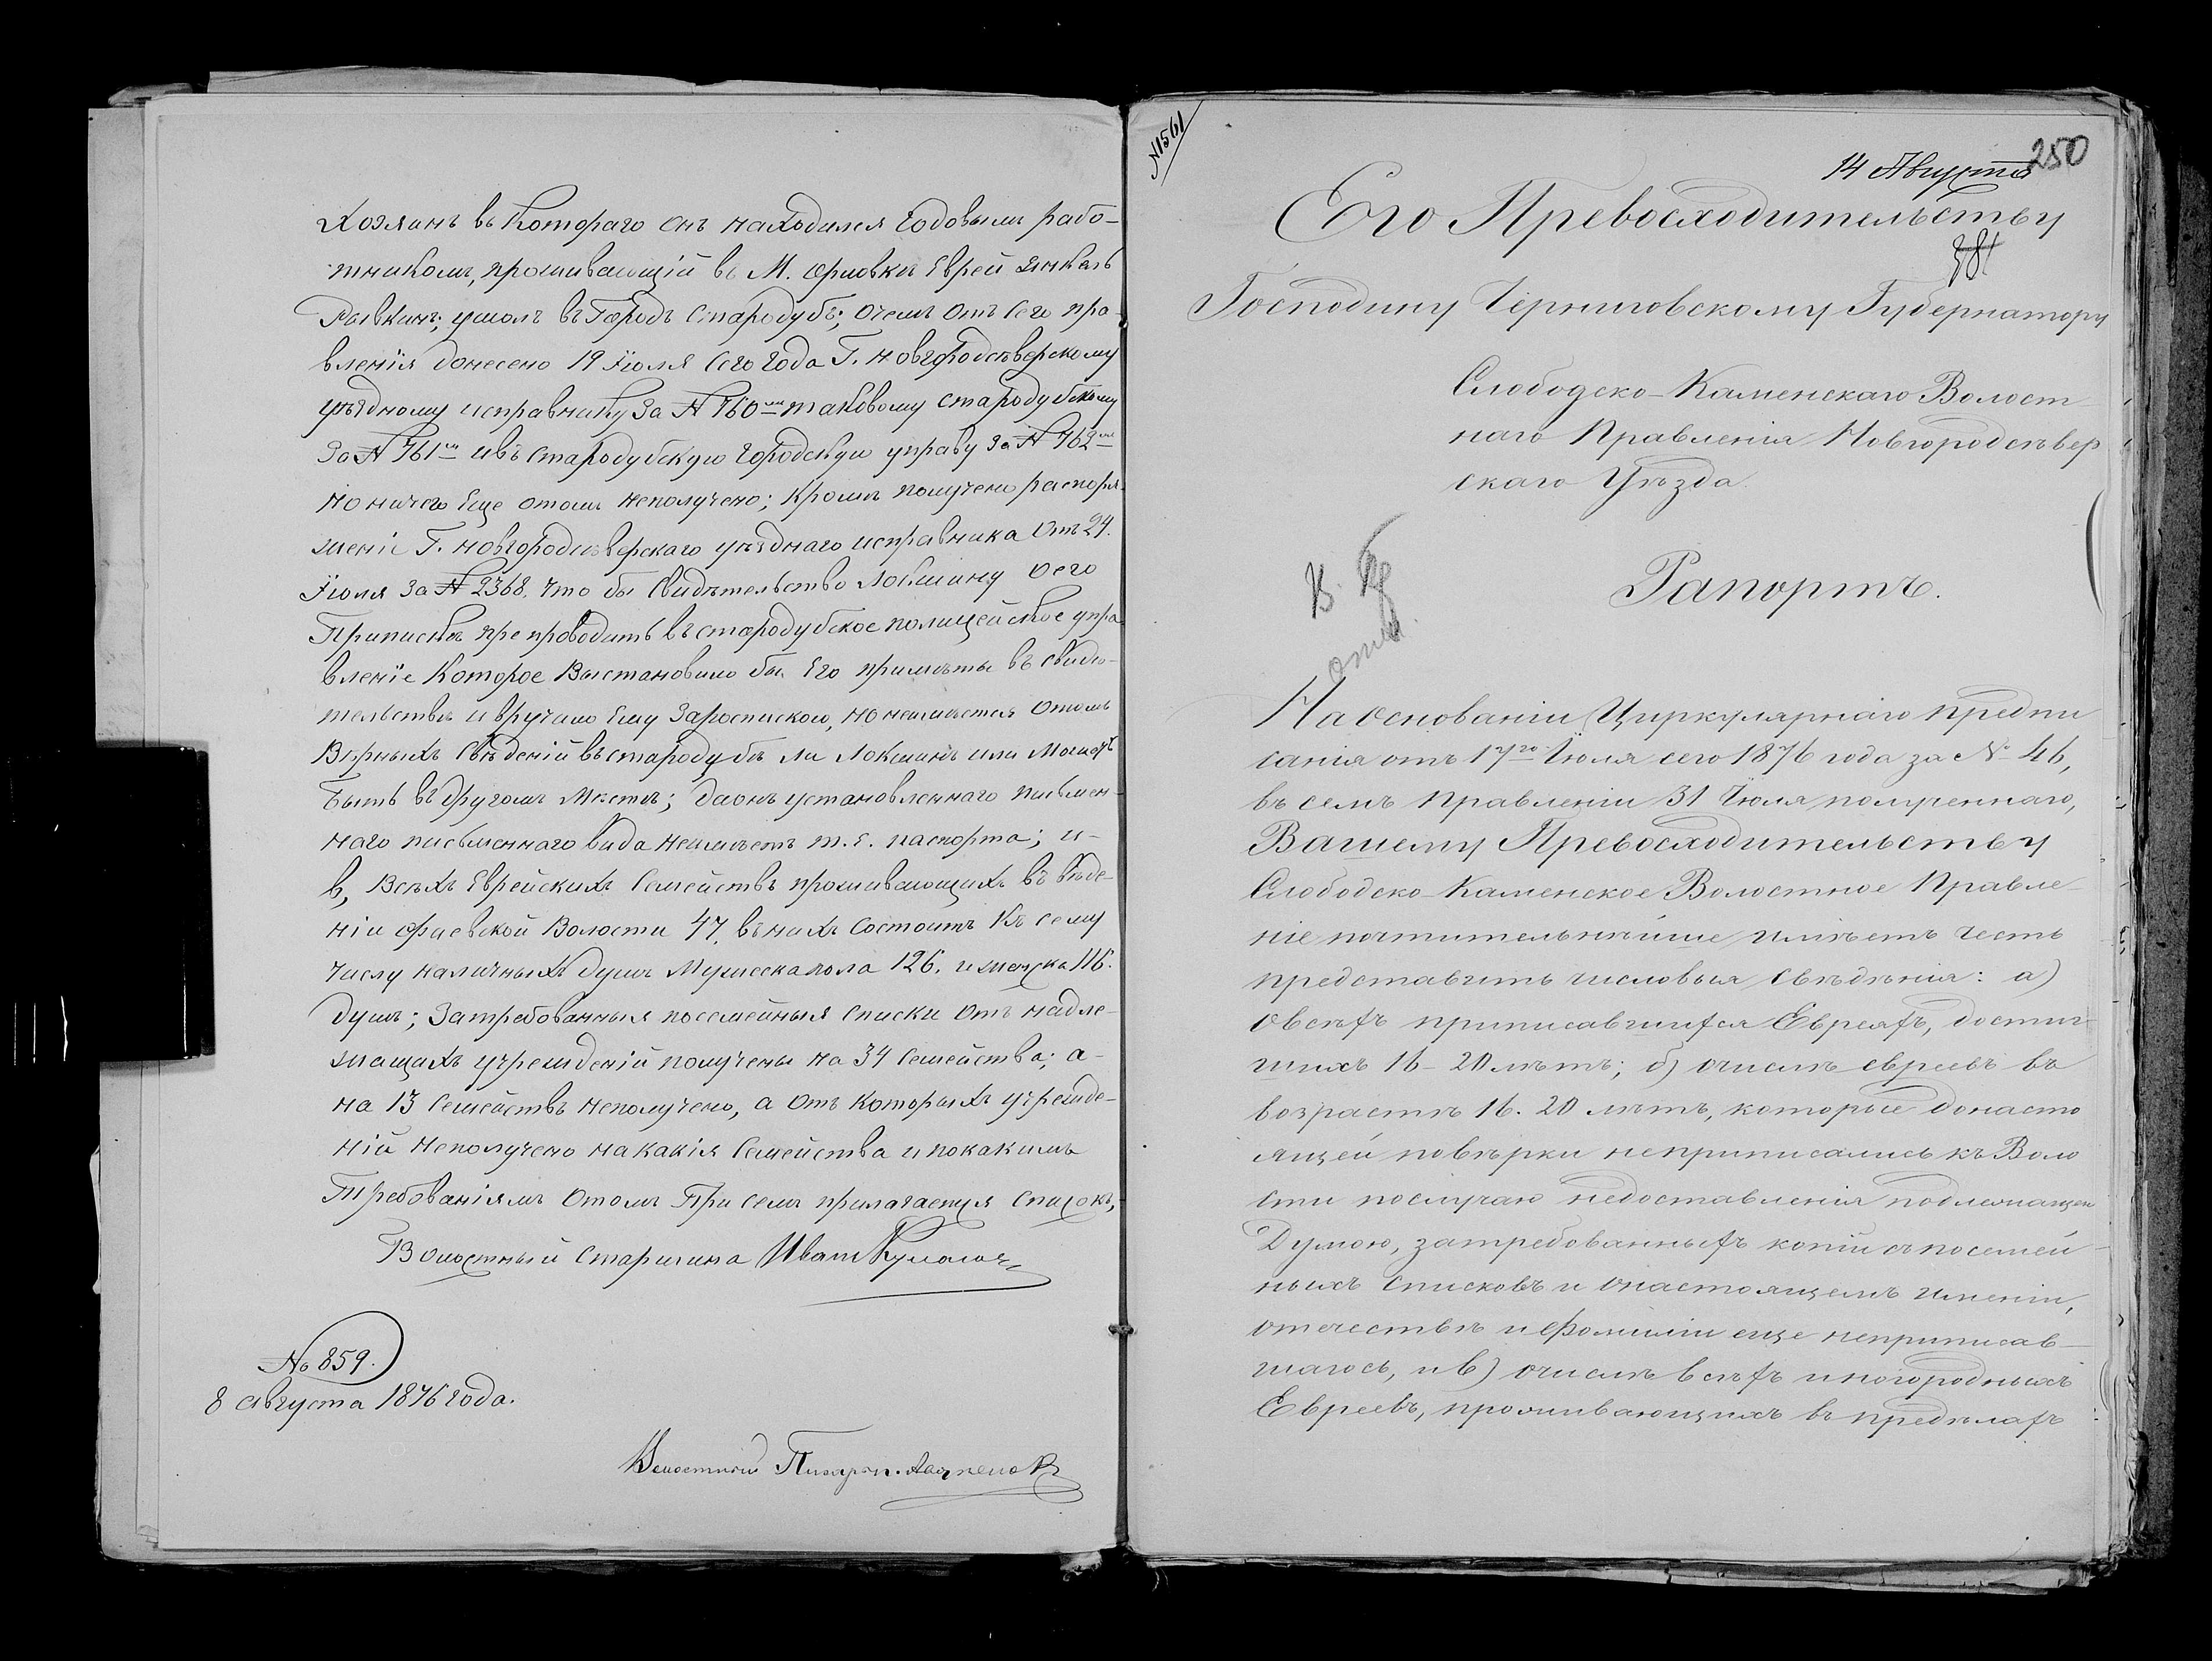 Хозяинъ въ Котораго онъ находился годовымъ рабо-
тникомъ, проживающій въ М. Орловкѣ Еврей Янкель
Рывкинъ; ушолъ въ Городъ Стародубъ; очемъ отъ сего пра-
вленія донесено 19 Іюля сего года Г. Новгородсѣверскому
уѣздному исправнику За № 760мъ таковому стародубскому
За № 761мъ ивъ стародубскую городскую управу За № 762мъ
но ничего еще отомъ неполучено; кромѣ получено распоря-
женіе Г. Новгородсѣверскаго уѣзднаго исправника отъ 24.
Іюля За № 2368. что бы свидѣтельство Локшину оего
Припискѣ препроводить въ стародубское полицейское упра-
вленіе Которое Выстановило бы Его примѣты въ свидѣ-
тельствѣ и вручило Ему Зароспиською, но неимѣется отомъ
Вѣрныхъ свѣденій въ стародубѣ ли Локшинъ или Можетъ
Быть въ другомъ Мѣстѣ; даонъ установленнаго письмен-
наго письменнаго вида неимѣетъ т.е. паспорта; и-
в, Всѣхъ Еврейскихъ Семействъ проживающихъ въ вѣде-
ніи Фаевской Волости 47. въ нихъ состоитъ Къ сему
числу наличныхъ душъ Мужеска пола 126. и женска 116.
душъ; Затребованныя посемейныя списки отъ надле-
жащихъ учрежденій получены на 34 Семейства; а-
на 13 Семействъ неполучено, а отъ которыхъ учрежде-
ній неполучено на какія Семейства и покакимъ
Требованіямъ отомъ При семъ прилагается списокъ,-
Волостный старшина Иванъ
№ 859.
8 Августа 1876 года.
Волостный Писарь
№1561
250
14 Августа
Его Превосходительству
381
Господину Черниговскому Губернатору
Слободско-Каменскаго Волост-
наго Правленія Новгородсѣвер
скаго Уѣзда.
Рапортъ.
На основаніи Циркулярнаго предпи
санія отъ 17го Іюля сего 1876 года за № 46,
въ семъ Правленіи 31 Іюля полученнаго,
Вашему Превосходительству
Слободско-Каменское Волостное Правле-
ніе почтительнѣйше имѣетъ честь
представить числовыя свѣдѣнія: а)
овсѣхъ приписавшихся Евреяхъ, достиг-
шихъ 16-20 лѣтъ; б) очислѣ евреевъ въ
возрастѣ 16. 20 лѣтъ, которые донасто
ящей повѣрки неприписались къ Воло
сти послучаю недоставленія подлежащею
Думою, затребованныхъ копій съ посемей-
ныхъ списковъ и онастоящемъ имени,
отечествѣ и фамиліи еще неприписав-
шагось, и в) очислѣ всѣхъ иногородныхъ
Евреевъ, проживающихъ въ предѣлахъ